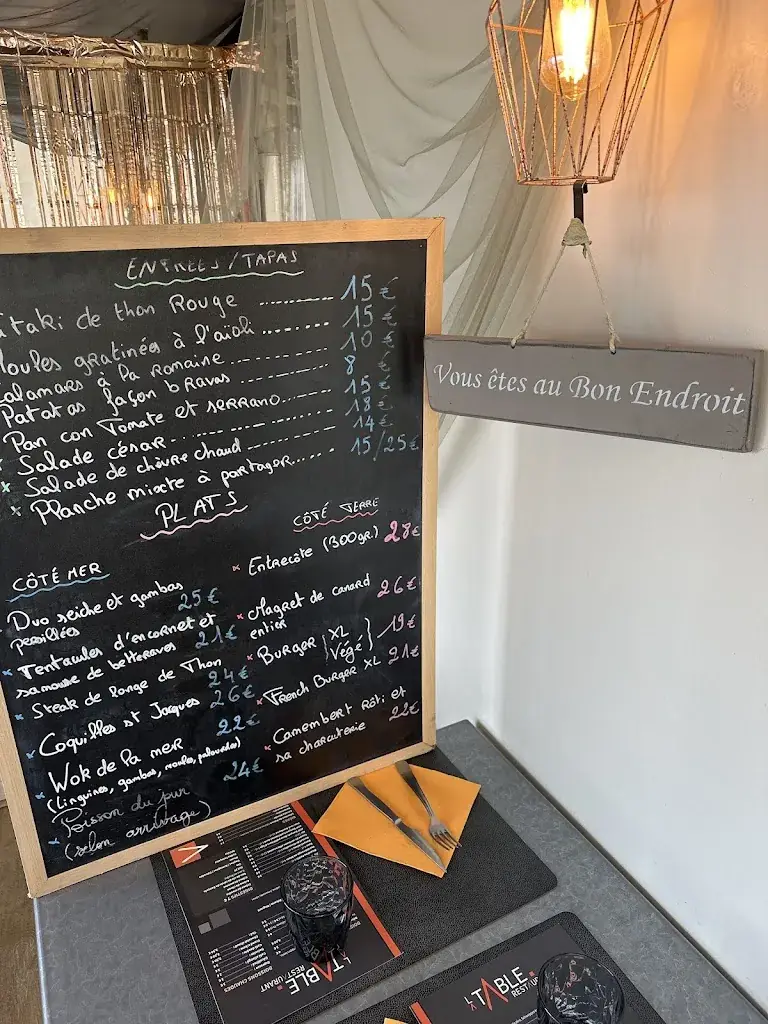 ENTREES / TAPAS
taki de thon Rouge ............ 15 €
Moules gratinées à l'aïoli ....... 15 €
Calamars à la Romaine ............ 10 €
Patatas façon bravas ............ 8 €
Pan con Tomate et serrano ....... 15 €
Salade césar ............ 18 €
x Salade de chèvre chaud ............ 14 €
x Planche mixte à partager ...... 15/25€
PLATS
CÔTÉ MER
Duo seiche et gambas
persillées 25 €
x Tentacules d'encornet et
samousse de betteraves 21 €
x Steak de longe de Thon 24 €
x Coquilles st Jacques 26 €
x Wok de la mer 22 €
(Linguines, gambas, moules, palourdes)
x Poisson du jour 24 €
(selon arrivage)
CÔTÉ TERRE
x Entrecôte (300gr.) 28 €
x Magret de canard
entier 26 €
x Burger { XL
Végé } 19 €
x French Burger XL 21 €
x Camembert Rôti et
sa charcuterie 22 €
Vous êtes au Bon Endroit
BOISSONS CHAUDES
TABLE
RESTAURANT
TABLE